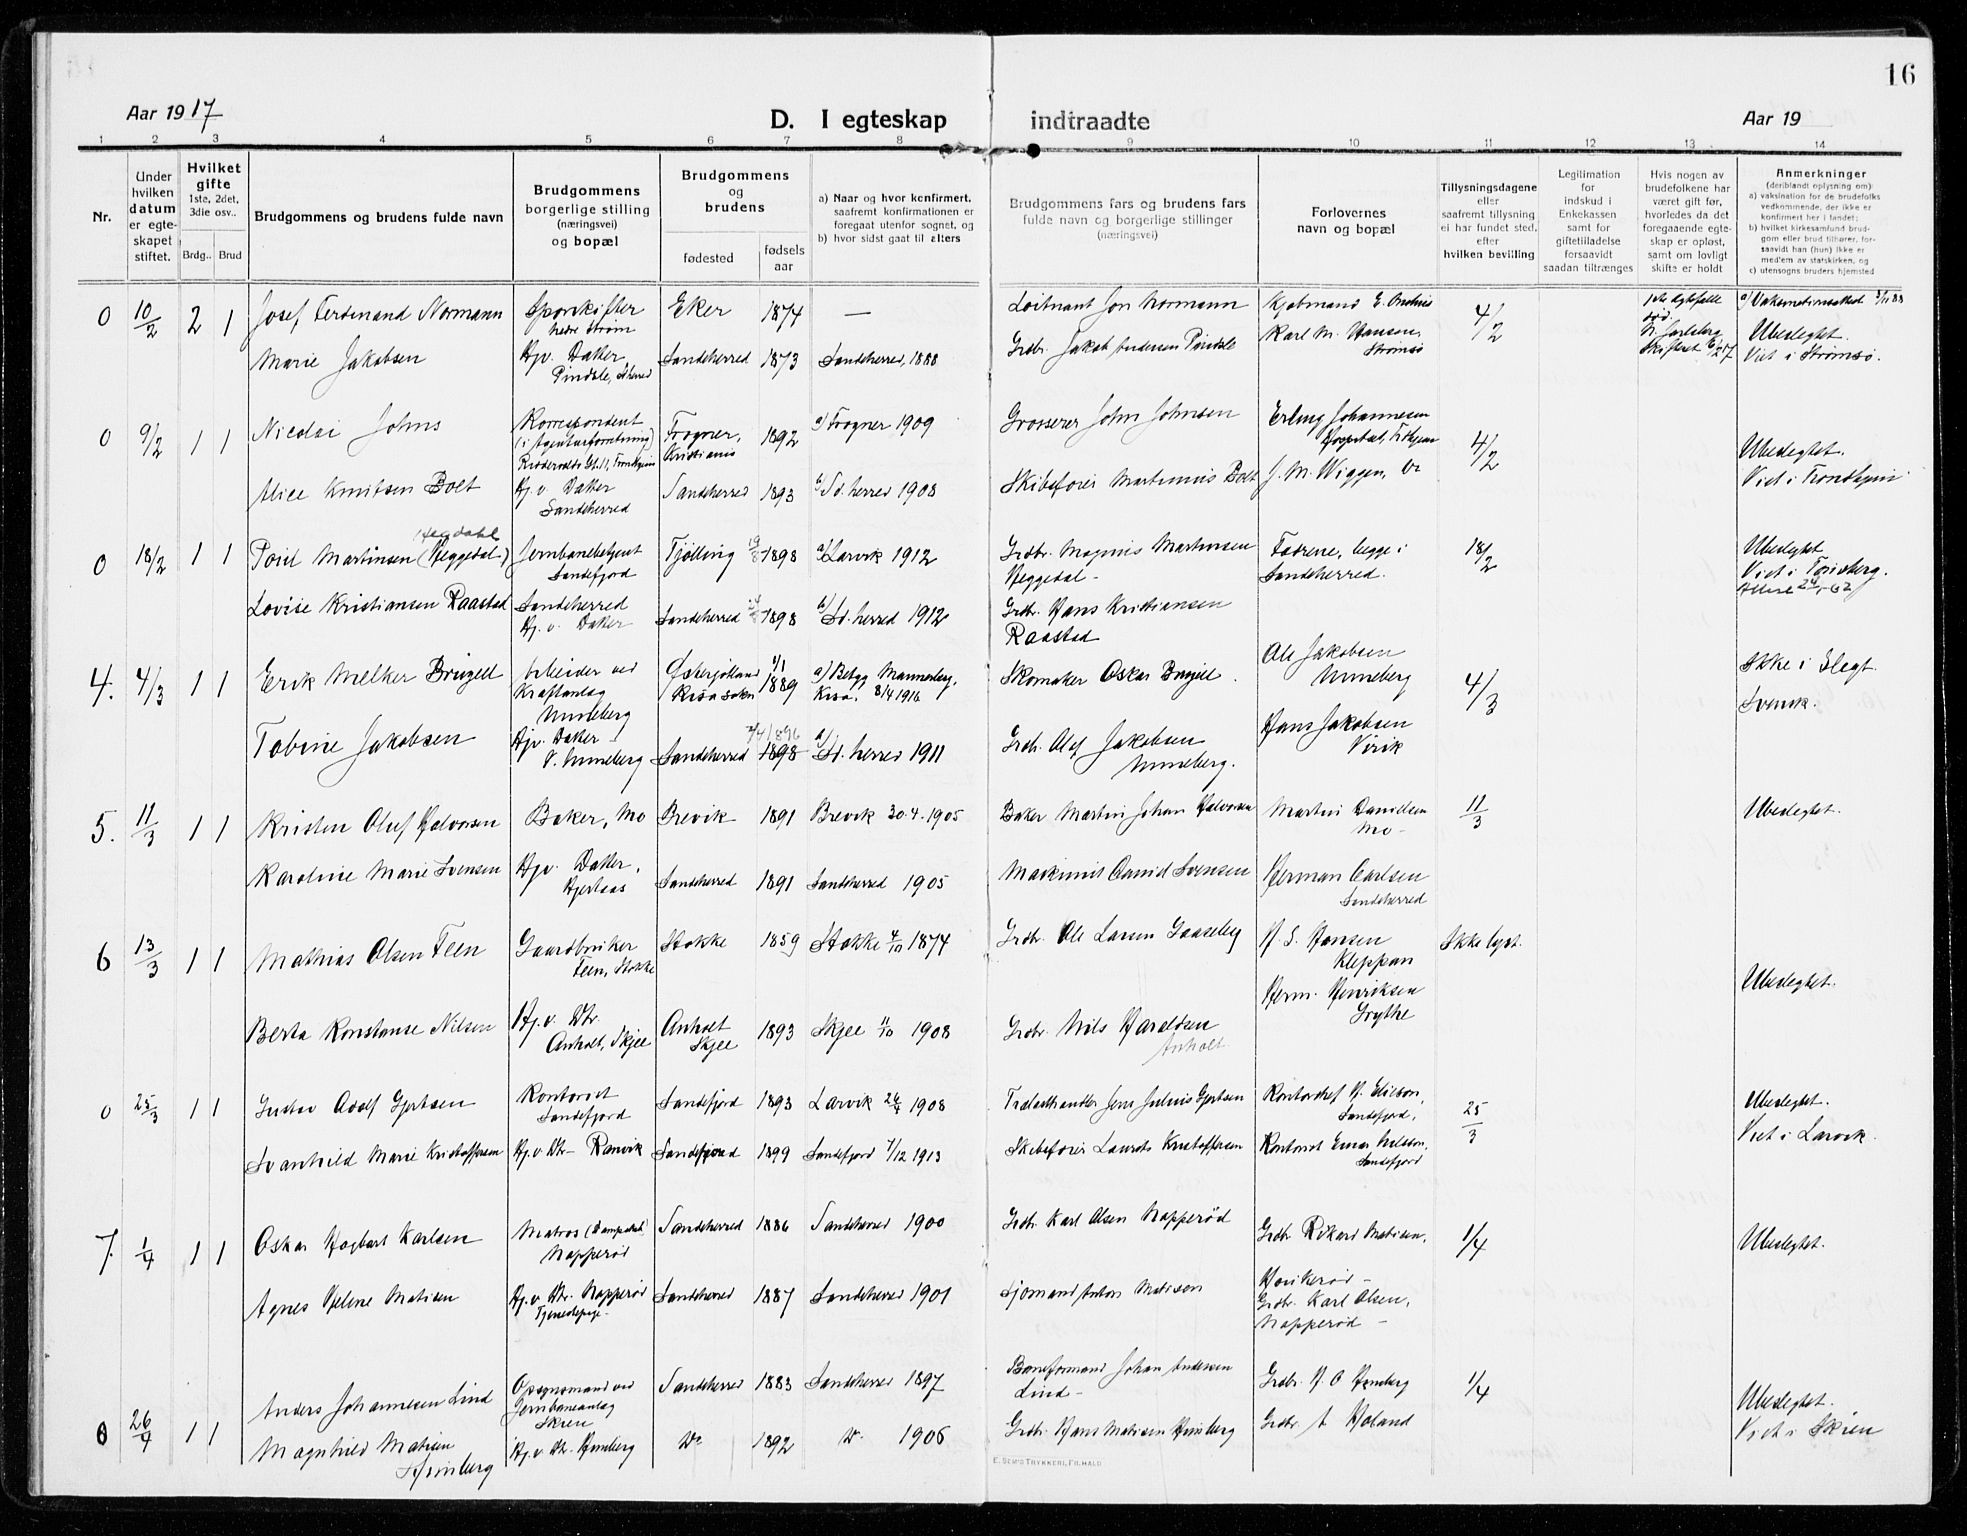 16
Aar 1917
D. I egteskap indtraadte
Aar 19
1 2 3 4 5 6 7 8 9 10 11 12 13 14
Nr.
Under
hvilken
datum
er egte-
skapet
stiftet.
Hvilket
gifte
1ste, 2det,
3die osv..
Brdg.. Brud
Brudgommens og brudens fulde navn
Brudgommens
borgerlige stilling
(næringsvei)
og bopæl
Brudgommens
og
brudens
fødested
fødsels
aar
a) Naar og hvor konfirmert,
saafremt konfirmationen er
foregaat utenfor sognet, og
b) hvor sidst gaat til alters
Brudgommens fars og brudens fars
fulde navn og borgerlige stillinger
(næringsvei)
Forlovernes
navn og bopæl
Tillysningsdagene
eller
saafremt tillysning
ei har fundet sted,
efter
hvilken bevilling
Legitimation
for
indskud i
Enkekassen
samt for
giftetilladelse
forsaavidt
saadan tiltrænges
Hvis nogen av
brudefolkene har
været gift før,
hvorledes da det
foregaaende egte-
skap er opløst,
samt om lovligt
skifte er holdt
Anmerkninger
(deriblandt oplysning om):
a) vaksination for de brudefolks
vedkommende, der ikke er
konfirmert her i landet;
b) hvilket kirkesamfund brud-
gom eller brud tilhører, for-
saavidt han (hun) ikke er
medlem av statskirken, og
c) utensogns bruders hjemsted
0 10/2 2 1 Josef Ferdinand Normann
Sporskifter
nedre Strøm
Eker 1874 —
Løitnant Jon Normann
Kjøbmand E.
4/2
Marie Jakobsen
Hjv. Datter
Pindsle, S.herred
Sandeherred 1873 Sandeherred, 1888
Grdbr. Jakob Andersen Pindsle
Karl M. Hansen,
Strømsø
Ubeslegtet.
Viet i Strømsø.
0 9/2 1 1 Nicolai Johns
Korrespondent
(i Agenturforretning)
Frogner,
Kristiania
1892 a) Frogner 1909
Grosserer John Johnsen
Erling Johannesen
4/2
Alice Knutsen Bolt
Hj. v. Datter
Sandeherred
Sandeherred 1893 b) Sd. herred 1908
Skibsfører Martinius Bolt
J. M. Wiggen,
Ubeslegtet.
Viet i Trondhjem
0 18/2 1 1 Poul Martinsen (Heggedal)
Hegdahl
Jernbanebetjent
Sandefjord
Tjølling 19/8 1898 a) Larvik 1912
Grdbr. Magnus Martinsen
Heggedal -
Fædrene, begge i
Sandeherred.
18/2
Ubeslegtet
Viet i Tønsberg.
Lovise Kristiansen Raastad
Sandeherred
Hj. v. Datter
Sandeherred 1898 b) Sd. herred 1912
Grdbr. Hans Kristiansen
Raastad
4. 4/3 1 1 Erik Melker Bruzell
Arbeider ved
Kraftanlæg
Unneberg
Østergötland
Kisa sokn
1/1 1889
a) Betyg Mannerberg,
Kisa, 8/4 1916
Skomaker Oskar Bruzell.
Ole Jakobsen
Unneberg
4/3
Ikke i Slegt.
Svensk.
Tobine Jakobsen
Hjv. Datter
V. Unneberg
Sandeherred 1898 7/4 1896 Sd. herred 1911
Grdb. Olef Jakobsen
Unneberg.
Hans Jakobsen
Virik
5. 11/3 1 1 Kristen Oluf Halvorsen
Baker, Mo Brevik 1891 Brevik 30.4.1905
Baker Martin Johan Halvorsen
Martin Danielsen
Mo -
11/3 Ubeslegtet.
Karoline Marie Svensen
Hjv. Datter,
Hjertaas
Sandeherred 1891 Sandeherred 1905
Maximus Daniel Svensen
Herman Carlsen
Sandeherred
6 13/3 1 1 Mathias Olsen Feen
Gaardbruker
Feen, Stokke
Stokke 1859 Stokke 4/10 1874
Grdbr. Ole Larsen Gaaseberg
H. S. Hansen
Kleppan
Ikke lyst.
Ubeslegtet.
Berta Konstanse Nilsen
Hj. v. Dtr.
Anholt, Skjee
Anholt
Skjee
1893 Skjee 11/10 1908
Grdbr. Nils Haraldsen
Anholt
Herm. Henriksen
Grythe
0 25/3 1 1 Gustav Adolf Gjertsen
Kontorist
Sandefjord
Sandefjord 1893 Larvik 26/4 1908
Trælasthandler Jens Julius Gjertsen
Sandefjord,
25/3
Ubeslegtet.
Viet i Larvik.
Svanhild Marie Kristoffersen
Hj. v. Dtr - Ranvik Sandefjord 1899 Sandefjord 7/12 1913
Skibsfører Laurits Kristoffersen
Kontorist Einar Nilsson,
Sandefjord
7. 1/4 1 1 Oskar Hagbart Karlsen
Matros
Napperød
Sandeherred 1886 Sandeherred 1900
Grdbr. Karl Olsen Napperød
Grdbr Rikard Matisen,
Haukerød -
1/4 Ubeslegtet.
Agnes Helene Matisen
Hj. v. Dtr. Napperød
Tjenestepige.
Sandeherred 1887 Sandeherred 1901
Sjømand Anton Matisen
Grdbr. Karl Olsen,
Napperød -
0 26/4 1 1 Anders Johannesen Lind
Opsynsmand ved
Jernbaneanlæg
Skien
Sandeherred 1883 Sandeherred 1897
Baneformand Johan Andersen
Lind -
Grdbr. H. O. Himberg
1/4
Ubeslegtet.
Viet i Skien
Magnhild Matisen
Himberg
Hj. v. Dtr. Himberg Do 1892 Do. 1906
Grdbr. Hans Matisen Himberg
Grdbr. A Holand
E. SEM'S TRYKKERI, FR.HALD